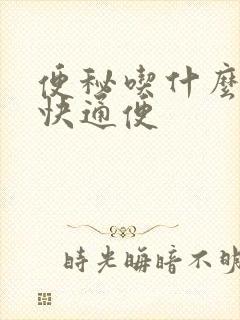 便秘喫什麼
快通便
時光晦暗不明